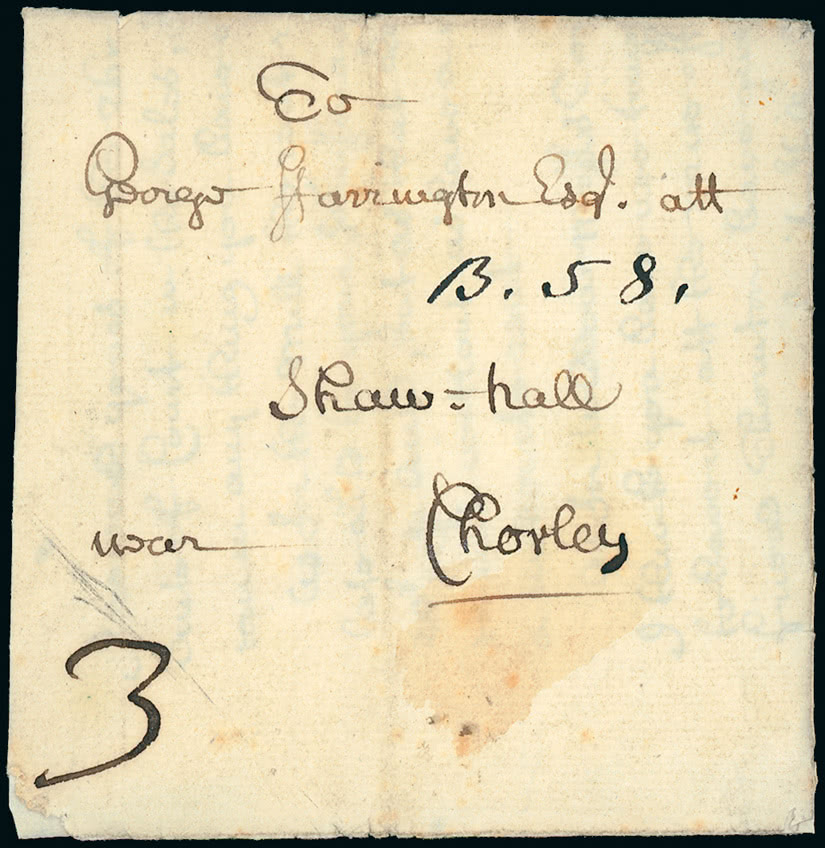 To
George Harrington Esq. att
B. 58.
Shaw-hall
near Chorley
3